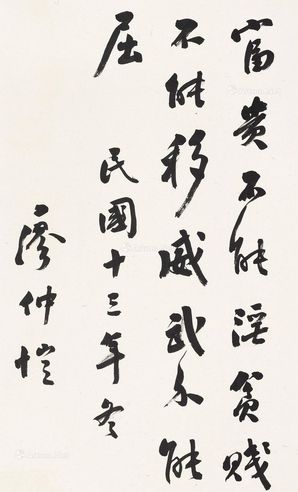 富貴不能淫貧賤
不能移威武不能
屈
民國十三年冬
廖仲愷